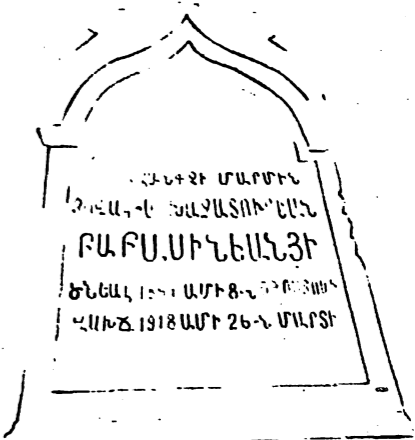 ՀԱՆԳՉԻ ՄԱՐՄԻՆ
ԽԱՉԱՏՈՒՐԵԱՆ
ԲԱԲԱՍԻՆԵԱՆՑԻ
ԾՆԵԱԼ ԱՄԻ 8-Ն
ՎԱԽՃ. 1918 ԱՄԻ 26-Ն ՄԱՐՏԻ